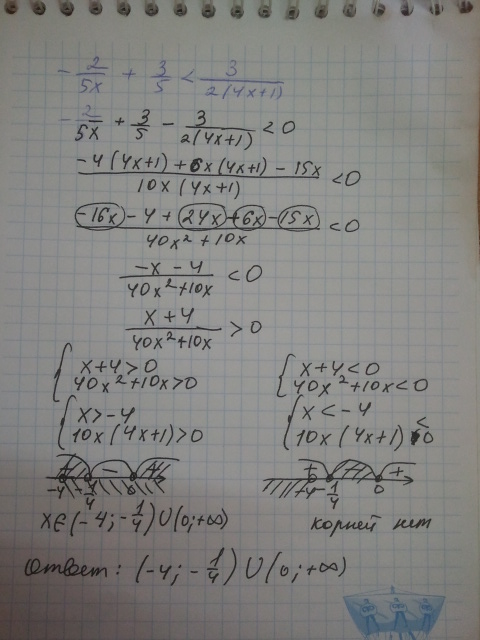 -2/5x + 3/5 < 3/2(4x+1)
-2/5x + 3/5 - 3/2(4x+1) < 0
-4(4x+1) + 6x(4x+1) - 15x / 10x(4x+1) < 0
-16x - 4 + 24x + 6x - 15x / 40x² + 10x < 0
-x - 4 / 40x² + 10x < 0
x + 4 / 40x² + 10x > 0
{ x+4 > 0
40x² + 10x > 0
{ x > -4
10x(4x+1) > 0
+ - +
-4 -1/4 0
x ∈ (-4; -1/4) ∪ (0; +∞)
{ x+4 < 0
40x² + 10x < 0
{ x < -4
10x(4x+1) < 0
+ - +
-4 -1/4 0
корней нет
ответ: (-4; -1/4) ∪ (0; +∞)